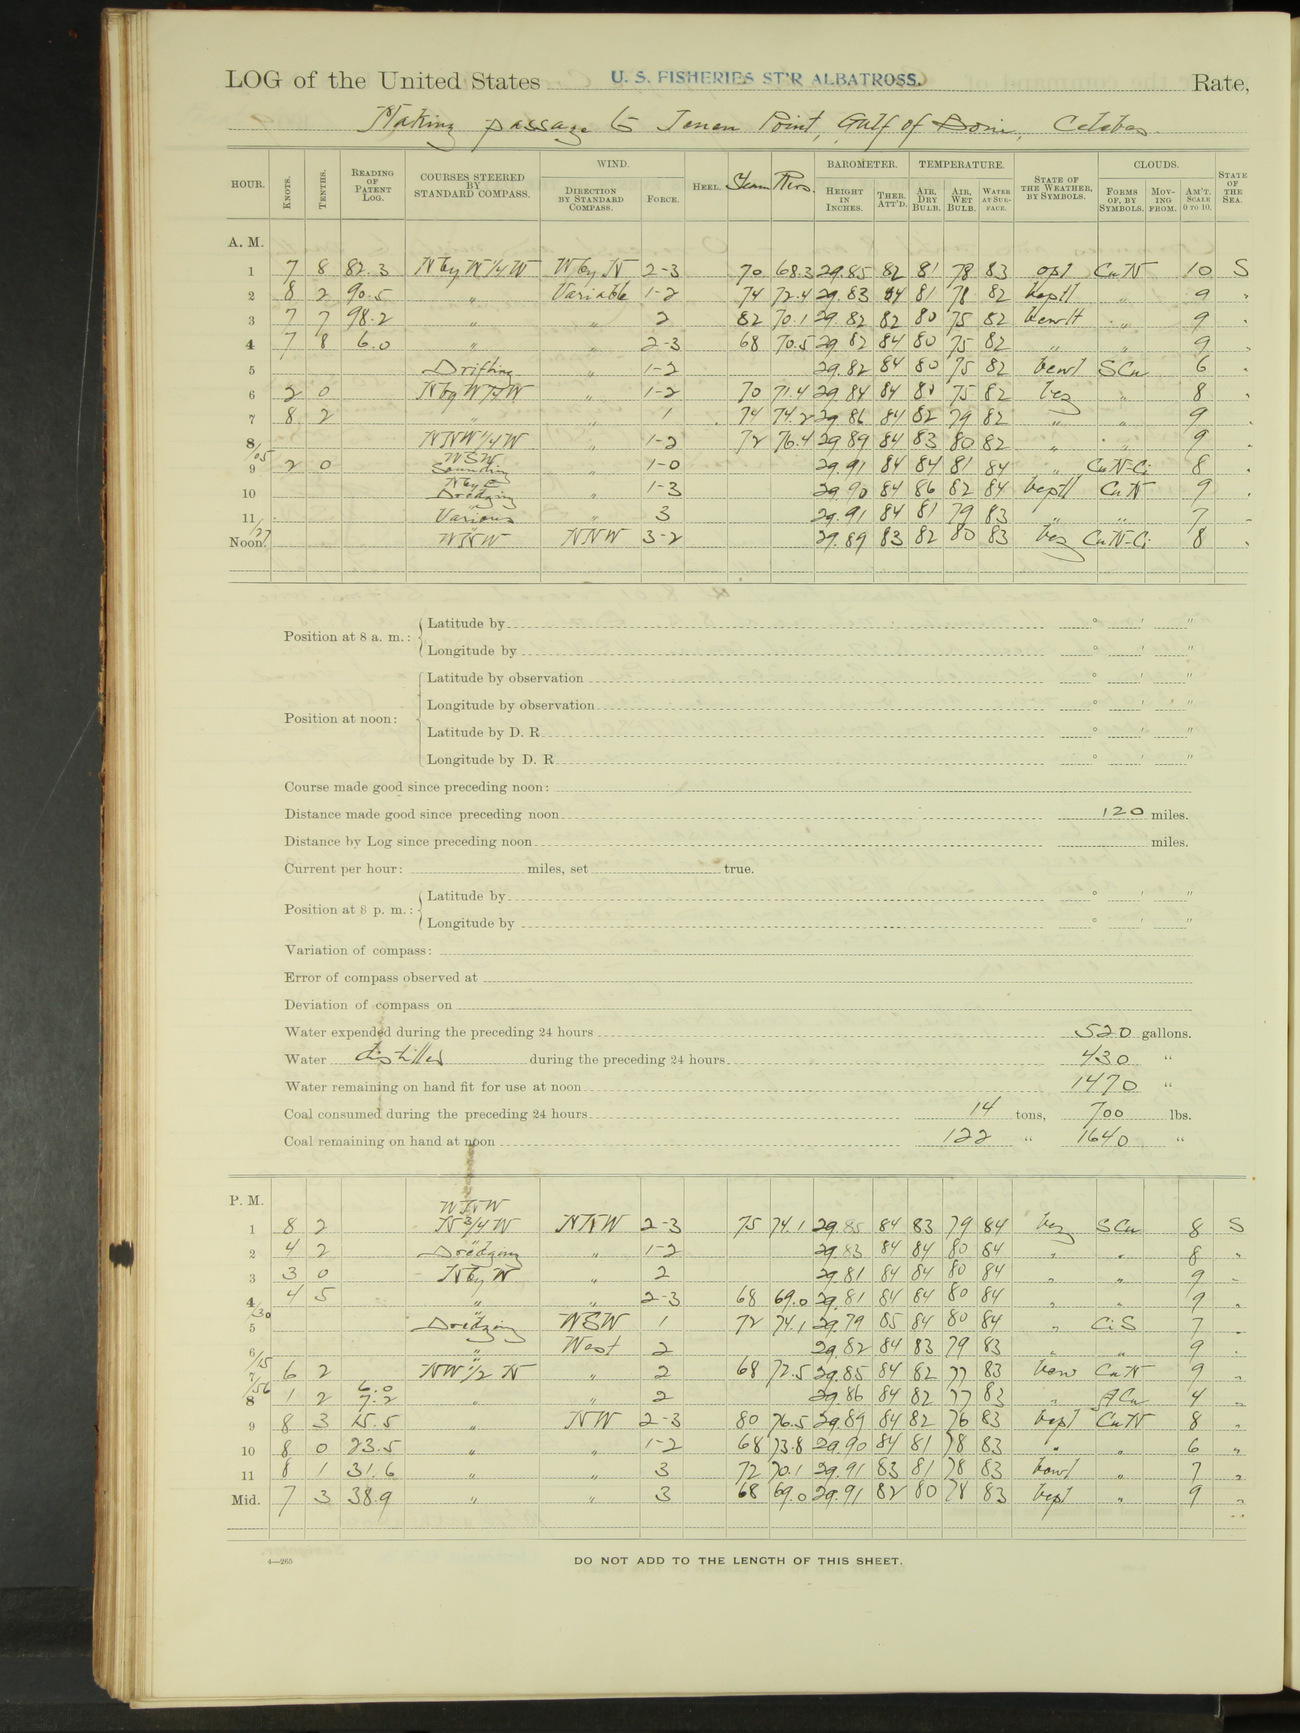 LOG of the United States U. S. FISHERIES ST'R ALBATROSS. Rate,
Making passage to Point, Gulf of Boni, Celebes.
HOUR. KNOTS. TENTHS. READING OF PATENT LOG. COURSES STEERED BY STANDARD COMPASS. WIND. DIRECTION BY STANDARD COMPASS. FORCE. HEEL. Steam Revs. BAROMETER. HEIGHT IN INCHES. THER. ATT'D. TEMPERATURE. AIR, DRY BULB. AIR, WET BULB. WATER AT SUR-FACE. STATE OF THE WEATHER, BY SYMBOLS. CLOUDS. FORMS OF, BY SYMBOLS. MOV-ING FROM. AM'T. SCALE 0 TO 10. STATE OF THE SEA.
A. M.
1 7 8 82.3 N by W 1/4 W W by N 2-3 70 68.3 29.85 82 81 78 83 opl Cu N 10 S
2 8 2 90.5 " Variable 1-2 74 72.4 29.83 84 81 78 82 bcptl " 9 "
3 7 7 98.2 " " 2 82 70.1 29.82 82 80 75 82 " 9 "
4 7 8 6.0 " " 2-3 68 70.5 29.82 84 80 75 82 " " 9 "
5 Drifting " 1-2 29.82 84 80 75 82 S Cu 6 "
6 2 0 N by W 1/4 W " 1-2 70 71.4 29.84 84 81 75 82 bcz " 8 "
7 8 2 " " 1 74 74.2 29.86 84 82 79 82 " " 9 "
8 NNW 1/4 W " 1-2 72 76.4 29.89 84 83 80 82 " " 9 "
/05 WSW
9 2 0 Sounding " 1-0 29.91 84 84 81 84 " Cu N-Ci 8 "
N by E
10 Dredging " 1-3 29.90 84 86 82 84 bcptl Cu N 9 "
11 Various " 3 29.91 84 81 79 83 " " 7 "
/27
Noon. WNW NNW 3-2 29.89 83 82 80 83 bcz Cu N-Ci 8 "
Position at 8 a. m.: Latitude by ° ' "
Longitude by ° ' "
Position at noon: Latitude by observation ° ' "
Longitude by observation ° ' "
Latitude by D. R ° ' "
Longitude by D. R ° ' "
Course made good since preceding noon:
Distance made good since preceding noon 120 miles.
Distance by Log since preceding noon miles.
Current per hour: miles, set true.
Position at 8 p. m.: Latitude by ° ' "
Longitude by ° ' "
Variation of compass:
Error of compass observed at
Deviation of compass on
Water expended during the preceding 24 hours 520 gallons.
Water distilled during the preceding 24 hours 430 "
Water remaining on hand fit for use at noon 1470 "
Coal consumed during the preceding 24 hours 14 tons, 700 lbs.
Coal remaining on hand at noon 122 " 1640 "
P. M.
WNW
1 8 2 N 3/4 W NNW 2-3 75 74.1 29.85 84 83 79 84 bcz S Cu 8 S
2 4 2 Dredging " 1-2 29.83 84 84 80 84 " " 8 "
3 3 0 N by W " 2 29.81 84 84 80 84 " " 9 "
4 4 5 " " 2-3 68 69.0 29.81 84 84 80 84 " " 9 "
/30
5 Dredging WSW 1 72 74.1 29.79 85 84 80 84 " Ci S 7 "
6 " West 2 29.82 84 83 79 83 " " 9 "
/15
7 6 2 NW 1/2 N " 2 68 72.5 29.85 84 82 77 83 Cu N 9 "
/56 6.0
8 1 2 7.2 " " 2 29.86 84 82 77 83 " A Cu 4 "
9 8 3 15.5 " NW 2-3 80 76.5 29.89 84 82 76 83 bcpl Cu N 8 "
10 8 0 23.5 " " 1-2 68 73.8 29.90 84 81 78 83 " " 6 "
11 8 1 31.6 " " 3 72 70.1 29.91 83 81 78 83 " 7 "
Mid. 7 3 38.9 " " 3 68 69.0 29.91 82 80 78 83 bcpl " 9 "
4—265 DO NOT ADD TO THE LENGTH OF THIS SHEET.